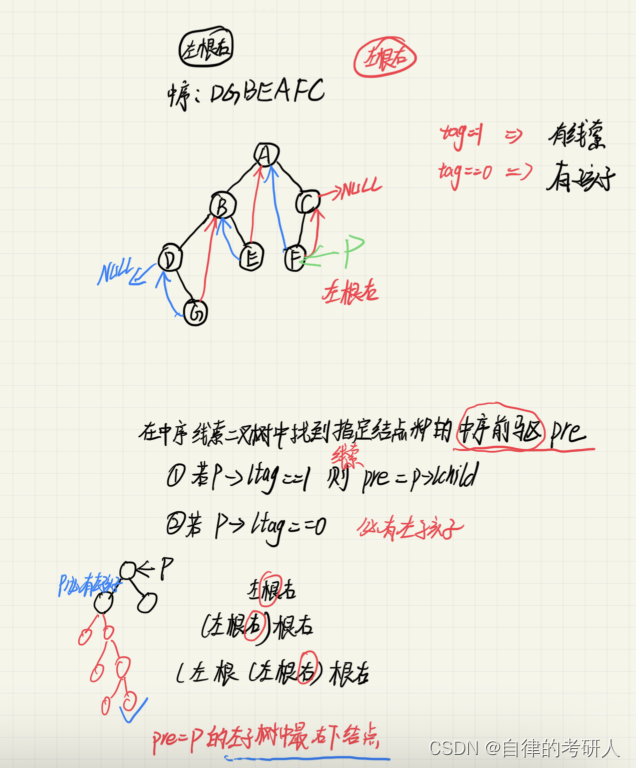 左根右
左根右
中序：DGBEAFC
tag==1 => 有线索
tag==0 => 有孩子
A
B
C
→NULL
NULL
D
E
F
P
G
左根右
在中序线索二叉树中找到指定结点*P的中序前驱 pre
线索
①若P->ltag==1 则 pre=p->lchild
②若 P->ltag==0 必有左孩子
P
P必有左孩子
左根右
(左根右)根右
(左根(左根右)根右
pre=P的左子树中最右下结点
CSDN @自律的考研人